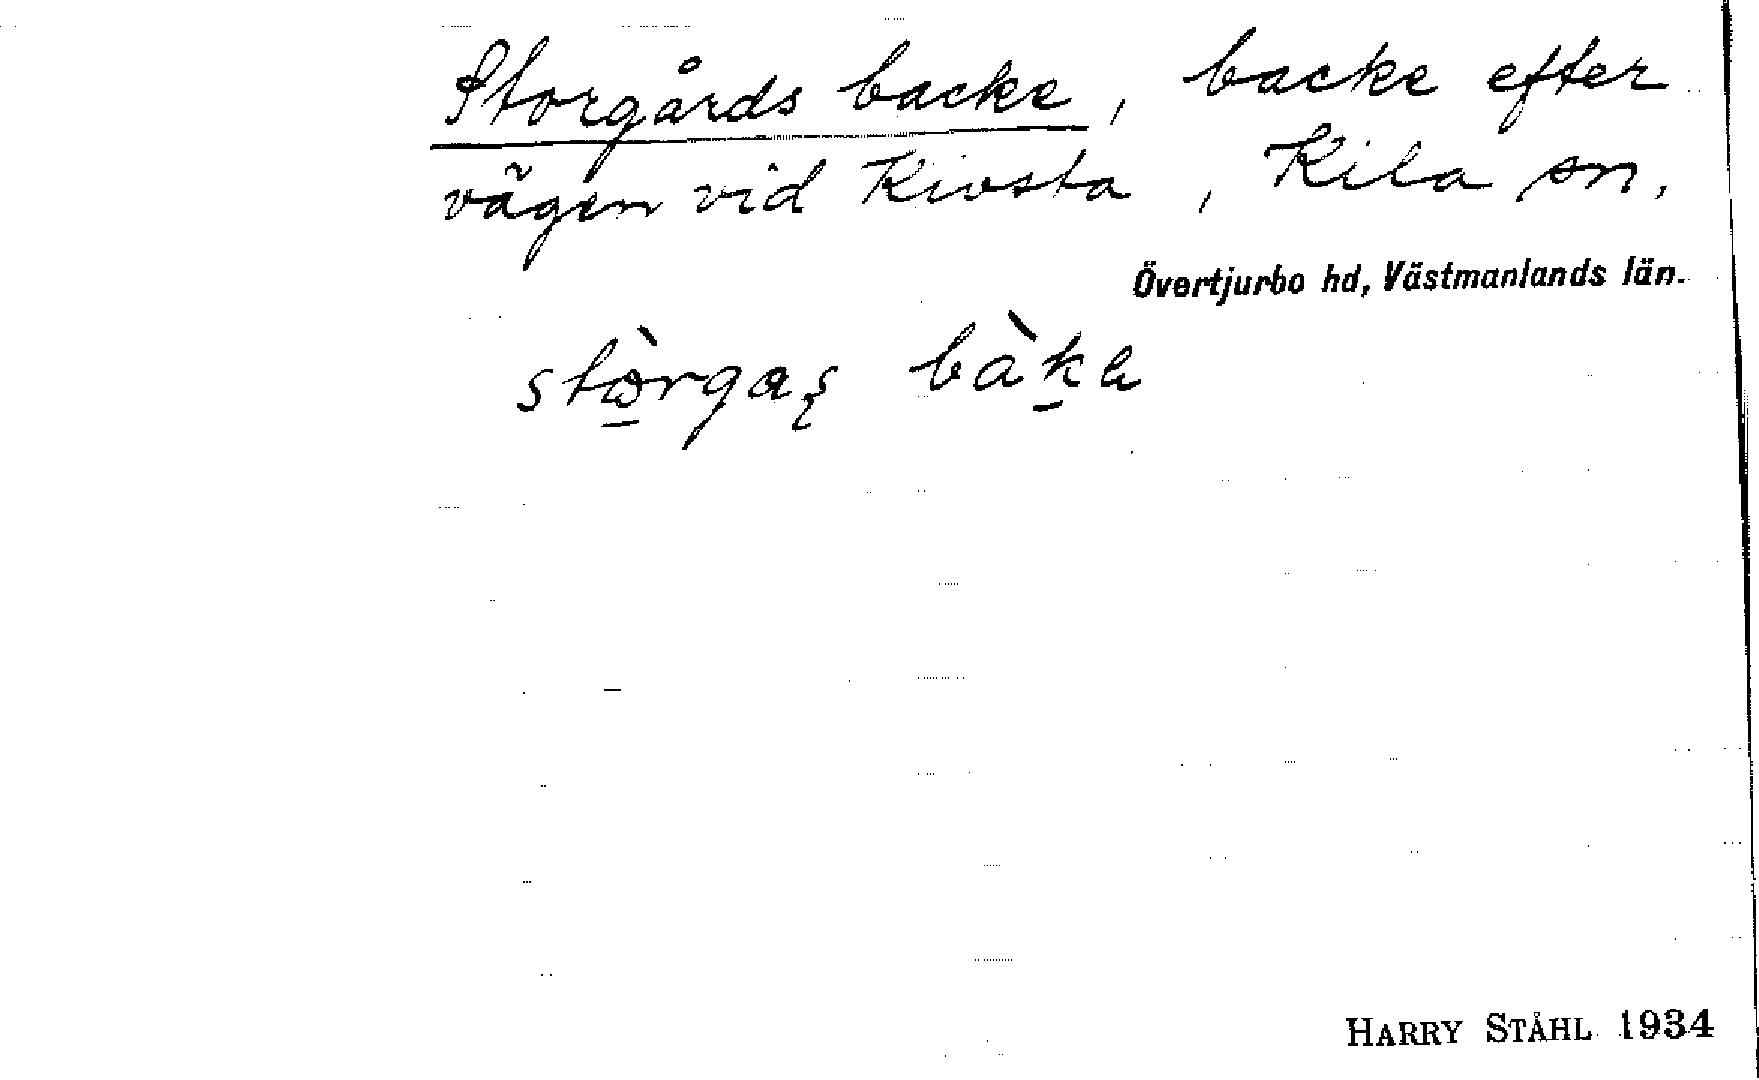 Storgårds backe, backe efter
vägen vid Kivsta, Kila sn,
Övertjurbo hd, Västmanlands län.
stòrgaș bàka
HARRY STÅHL 1934